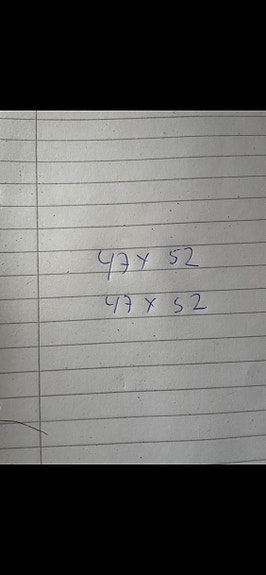 47x 52
47 x 52